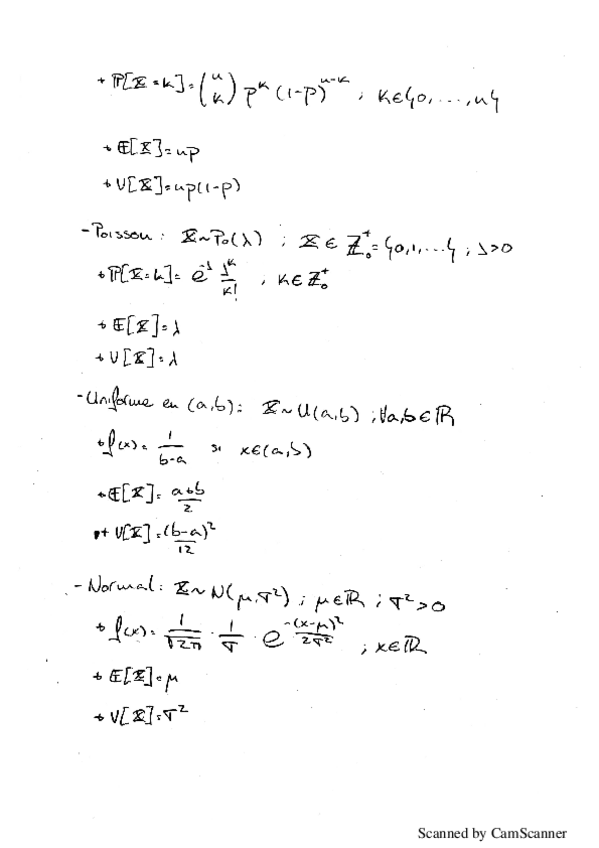 + ℙ[X=k]=(n k) p^k (1-p)^{n-k} ; k∈{0,...,n}
+ 𝔼[X]=np
+ V[X]=np(1-p)
- Poisson: X~Po(λ) ; X∈ℤ₀⁺={0,1,...} ; λ>0
+ ℙ[X=k]= e^{-λ} λ^k/k! , k∈ℤ₀⁺
+ 𝔼[X]=λ
+ V[X]=λ
- Uniforme en (a,b): X~U(a,b) ; ∀a,b∈ℝ
+ f(x)= 1/(b-a) si x∈(a,b)
+ 𝔼[X]= (a+b)/2
+ V[X]=(b-a)²/12
- Normal: X~N(μ,σ²) ; μ∈ℝ ; σ²>0
+ f(x)= 1/√2π · 1/σ · e^{-(x-μ)²/2σ²} ; x∈ℝ
+ 𝔼[X]=μ
+ V[X]=σ²
Scanned by CamScanner